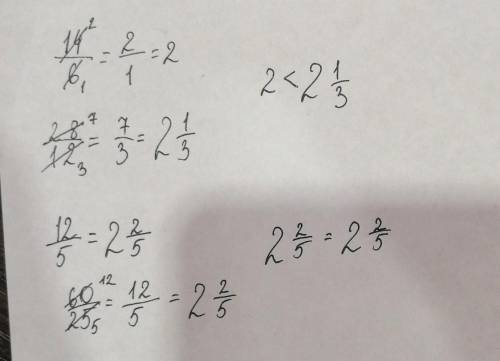 14/6 ² ₁ = 2/1 = 2
2 < 2 1/3
28/12 ⁷ ₃ = 7/3 = 2 1/3
12/5 = 2 2/5
2 2/5 = 2 2/5
60/25 ¹² ₅ = 12/5 = 2 2/5